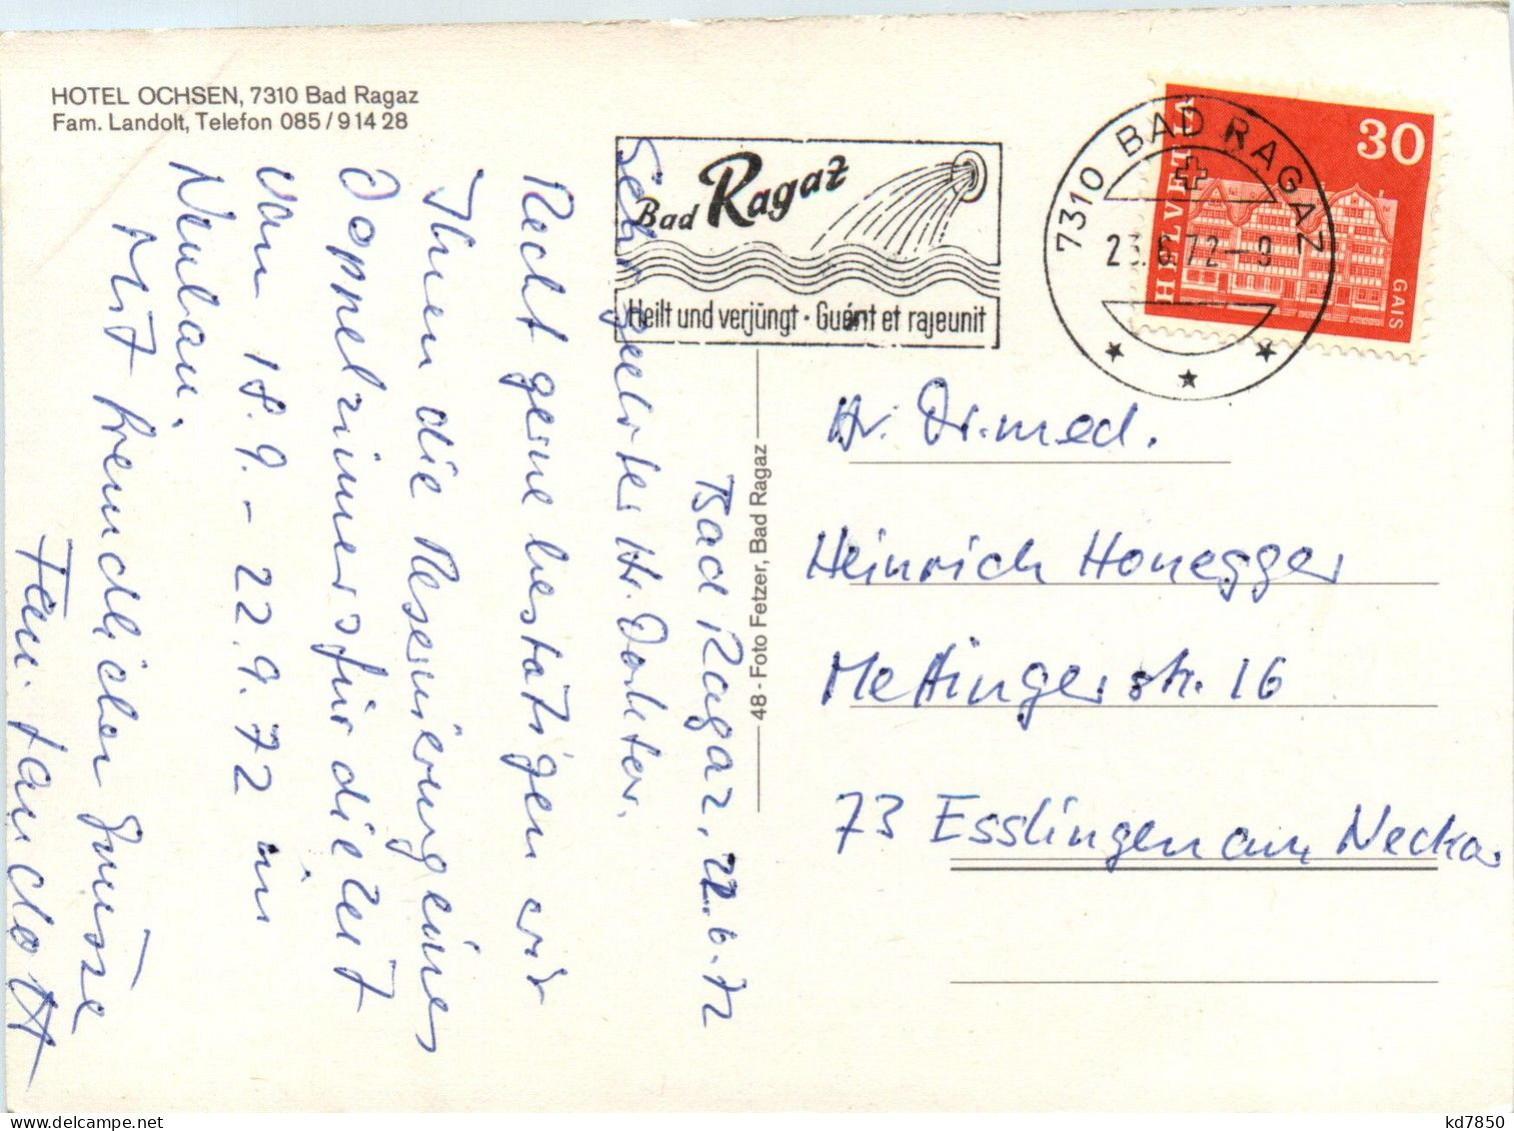 HOTEL OCHSEN, 7310 Bad Ragaz
Fam. Landolt, Telefon 085/9 14 28
Bad Ragaz
Heilt und verjüngt · Guérit et rajeunit
7310 BAD RAGAZ
23.6.72-9
HELVETIA
30
GAIS
Bad Ragaz, 22.6.72
Sehr geehrter Hr. Doktor.
Recht gerne bestätigen wir
Ihnen die Reservierung eines
Doppelzimmers für die Zeit
vom 18.9.-22.9.72 im
Neubau.
Mit freundlichen Grüssen
Fam. Landolt
48 - Foto Fetzer, Bad Ragaz
Hr. Dr. med.
Heinrich Honegger
Mettingerstr. 16
73 Esslingen am Neckar
kd7850